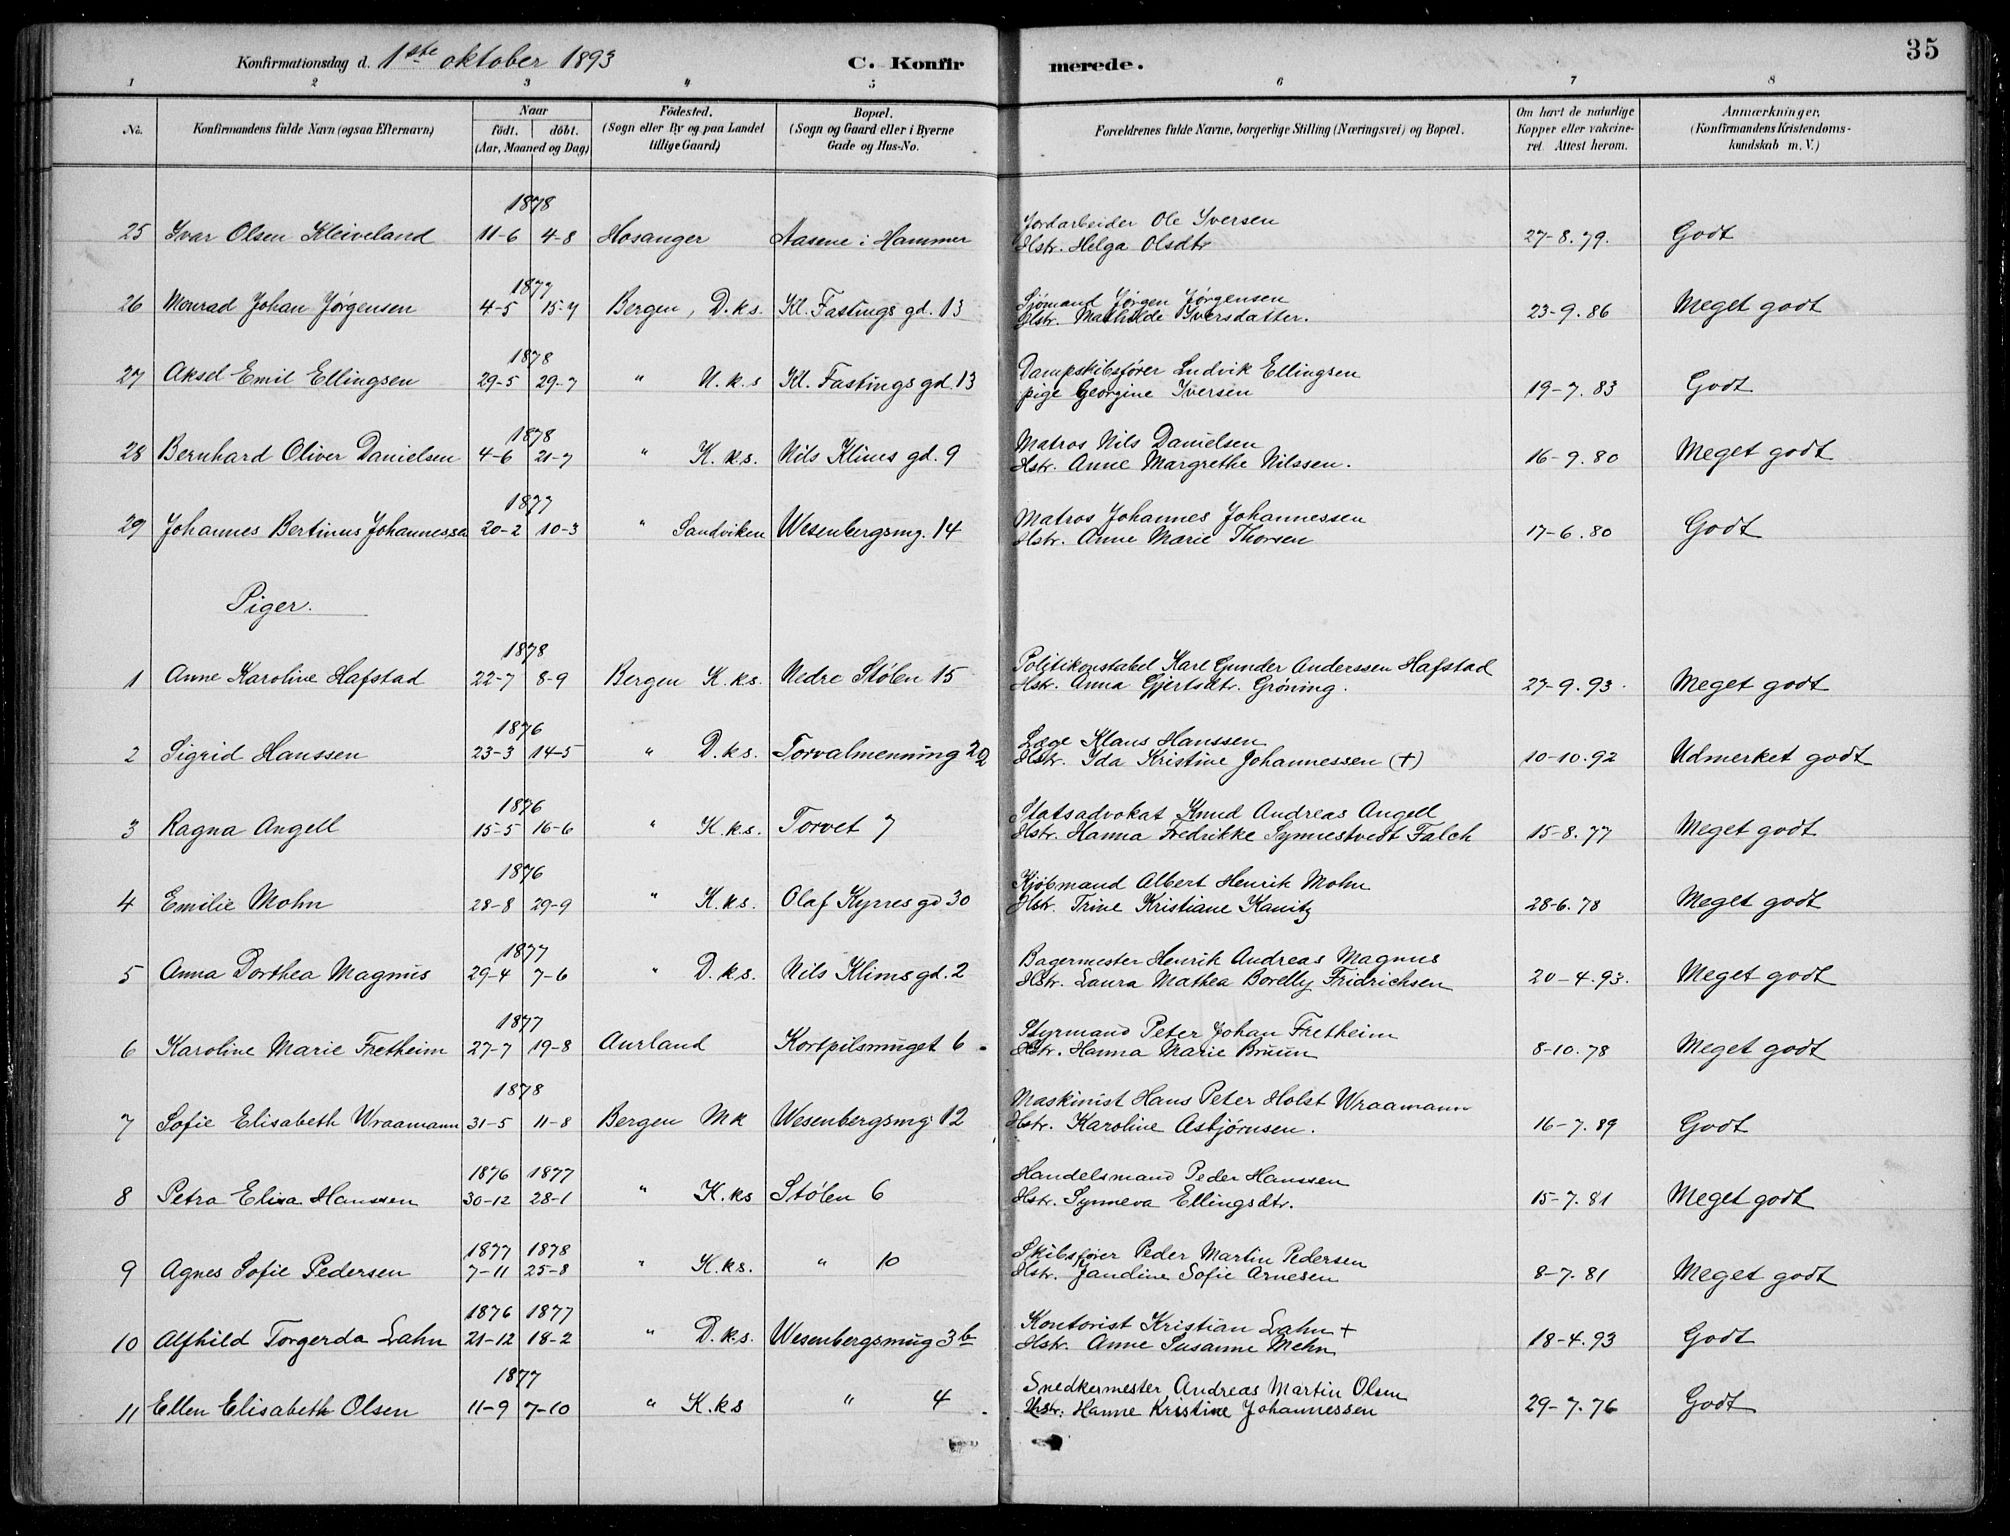 Konfirmationsdag d. 1ste oktober 1893 C. Konfirmerede. 35
1 2 3 4 5 6 7 8
No. Konfirmandens fulde Navn (ogsaa Efternavn) Naar födt. döbt. (Aar, Maaned og Dag) Födested. (Sogn eller By og paa Landet tillige Gaard) Bopæl. (Sogn og Gaard eller i Byerne Gade og Hus-No. Forældrenes fulde Navne, borgerlige Stilling (Næringsvei) og Bopæl. Om havt de naturlige Kopper eller vakcineret. Attest herom. Anmærkninger. (Konfirmandens Kristendomskundskab m. V.)
1878
25 Ivar Olsen Kleiveland 11-6 4-8 Hosanger Aasene i Hammer Jordarbeider Ole Iversen Hstr. Helga Olsdtr 27-8.79. Godt
1877
26 Monrad Johan Jørgensen 4-5 15-7 Bergen, D.ks. Kl. Fastings gd. 13 Sjömand Jørgen Jørgensen Hstr. Mathilde Iversdatter. 23-9.86 Meget godt
1878
27 Aksel Emil Ellingsen 29-5 29-7 " N.k.s Kl. Fastings gd. 13 Dampskibsfører Ludvik Ellingsen pige Georgine Iversen 19-7.83 Godt
1878
28 Bernhard Oliver Danielsen 4-6 21-7 " K.ks. Nils Klims gd. 9 Matros Nils Danielsen Hstr. Anne Margrethe Nilssen. 16-9.80 Meget godt
1877
29 Johannes Bertinus Johannessen 20-2 10-3 " Sandviken Wesenbergsmg. 14 Matros Johannes Johannessen Hstr. Anne Marie Thorsen 17-6.80 Godt
Piger.
1878
1 Anne Karoline Hafstad 22-7 8-9 Bergen K.ks. Nedre Stølen 15 Politikonstabel Karl Gunder Anderssen Hafstad Hstr. Anna Gjertsdtr. Grøning. 27-9.93. Meget godt
1876
2 Sigrid Hanssen 23-3 14-5 " D.ks. Torvalmenning 22 Læge Klaus Hanssen Hstr. Ida Kristine Johannessen (+) 10-10.92 Udmerket godt
1876
3 Ragna Angell 15-5 16-6 " K.ks. Torvet 7 Statsadvokat Knud Andreas Angell Hstr. Hanna Fredrikke Synnestvedt Falch 15-8.77 Meget godt
1876
4 Emilie Mohn 28-8 29-9 " K.ks. Olaf Kyrres gd 30 Kjöbmand Albert Henrik Mohn Hstr. Trine Kristiane Kanitz 28-6.78 Meget godt
1877
5 Anna Dorthea Magnus 29-4 7-6 " D.ks. Nils Klims gd. 2 Bagermester Henrik Andreas Magnus Hstr. Laura Mathea Borelly Fridrichsen 20-4.93. Meget godt
1877
6 Karoline Marie Fretheim 27-7 19-8 Aurland Kortpilsmuget 6 Styrmand Peter Johan Fretheim Hstr. Hanna Marie Bruun 8-10.78 Meget godt
1878
7 Sofie Elisabeth Wraamann 31-5 11-8 Bergen Mk Wesenbergsmg. 12 Maskinist Hans Peter Holst Wraamann Hstr. Karoline Asbjørnsen. 16-7.89 Godt
1876 1877
8 Petra Elisa Hanssen 30-12 28-1 " K.ks Stølen 6 Handelsmand Peder Hanssen Hstr. Synneva Ellingsdtr. 15-7.81 Meget godt
1877 1878
9 Agnes Sofie Pedersen 7-11 25-8 " K.ks. " 10 Skibsfører Peder Martin Pedersen Hstr. Jandine Sofie Arnesen 8-7.81 Meget godt
1876 1877
10 Alfhild Torgerda Lahn 21-12 18-2 " D.ks. Wesenbergsmug 3b Kontorist Kristian Lahn + Hstr. Anne Susanne Mehn 18-4.93 Godt
1877
11 Ellen Elisabeth Olsen 11-9 7-10 " K.ks " 4 Snedkermester Andreas Martin Olsen Hstr. Hanne Kristine Johannessen 29-7.76 Godt